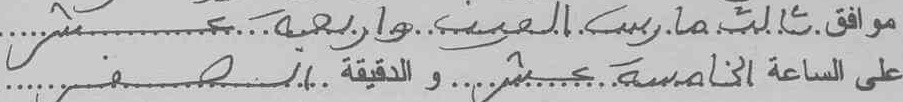 موافق ثالث مارس الفين واربعة عشر
على الساعة الخامسة عشر و الدقيقة الصفر